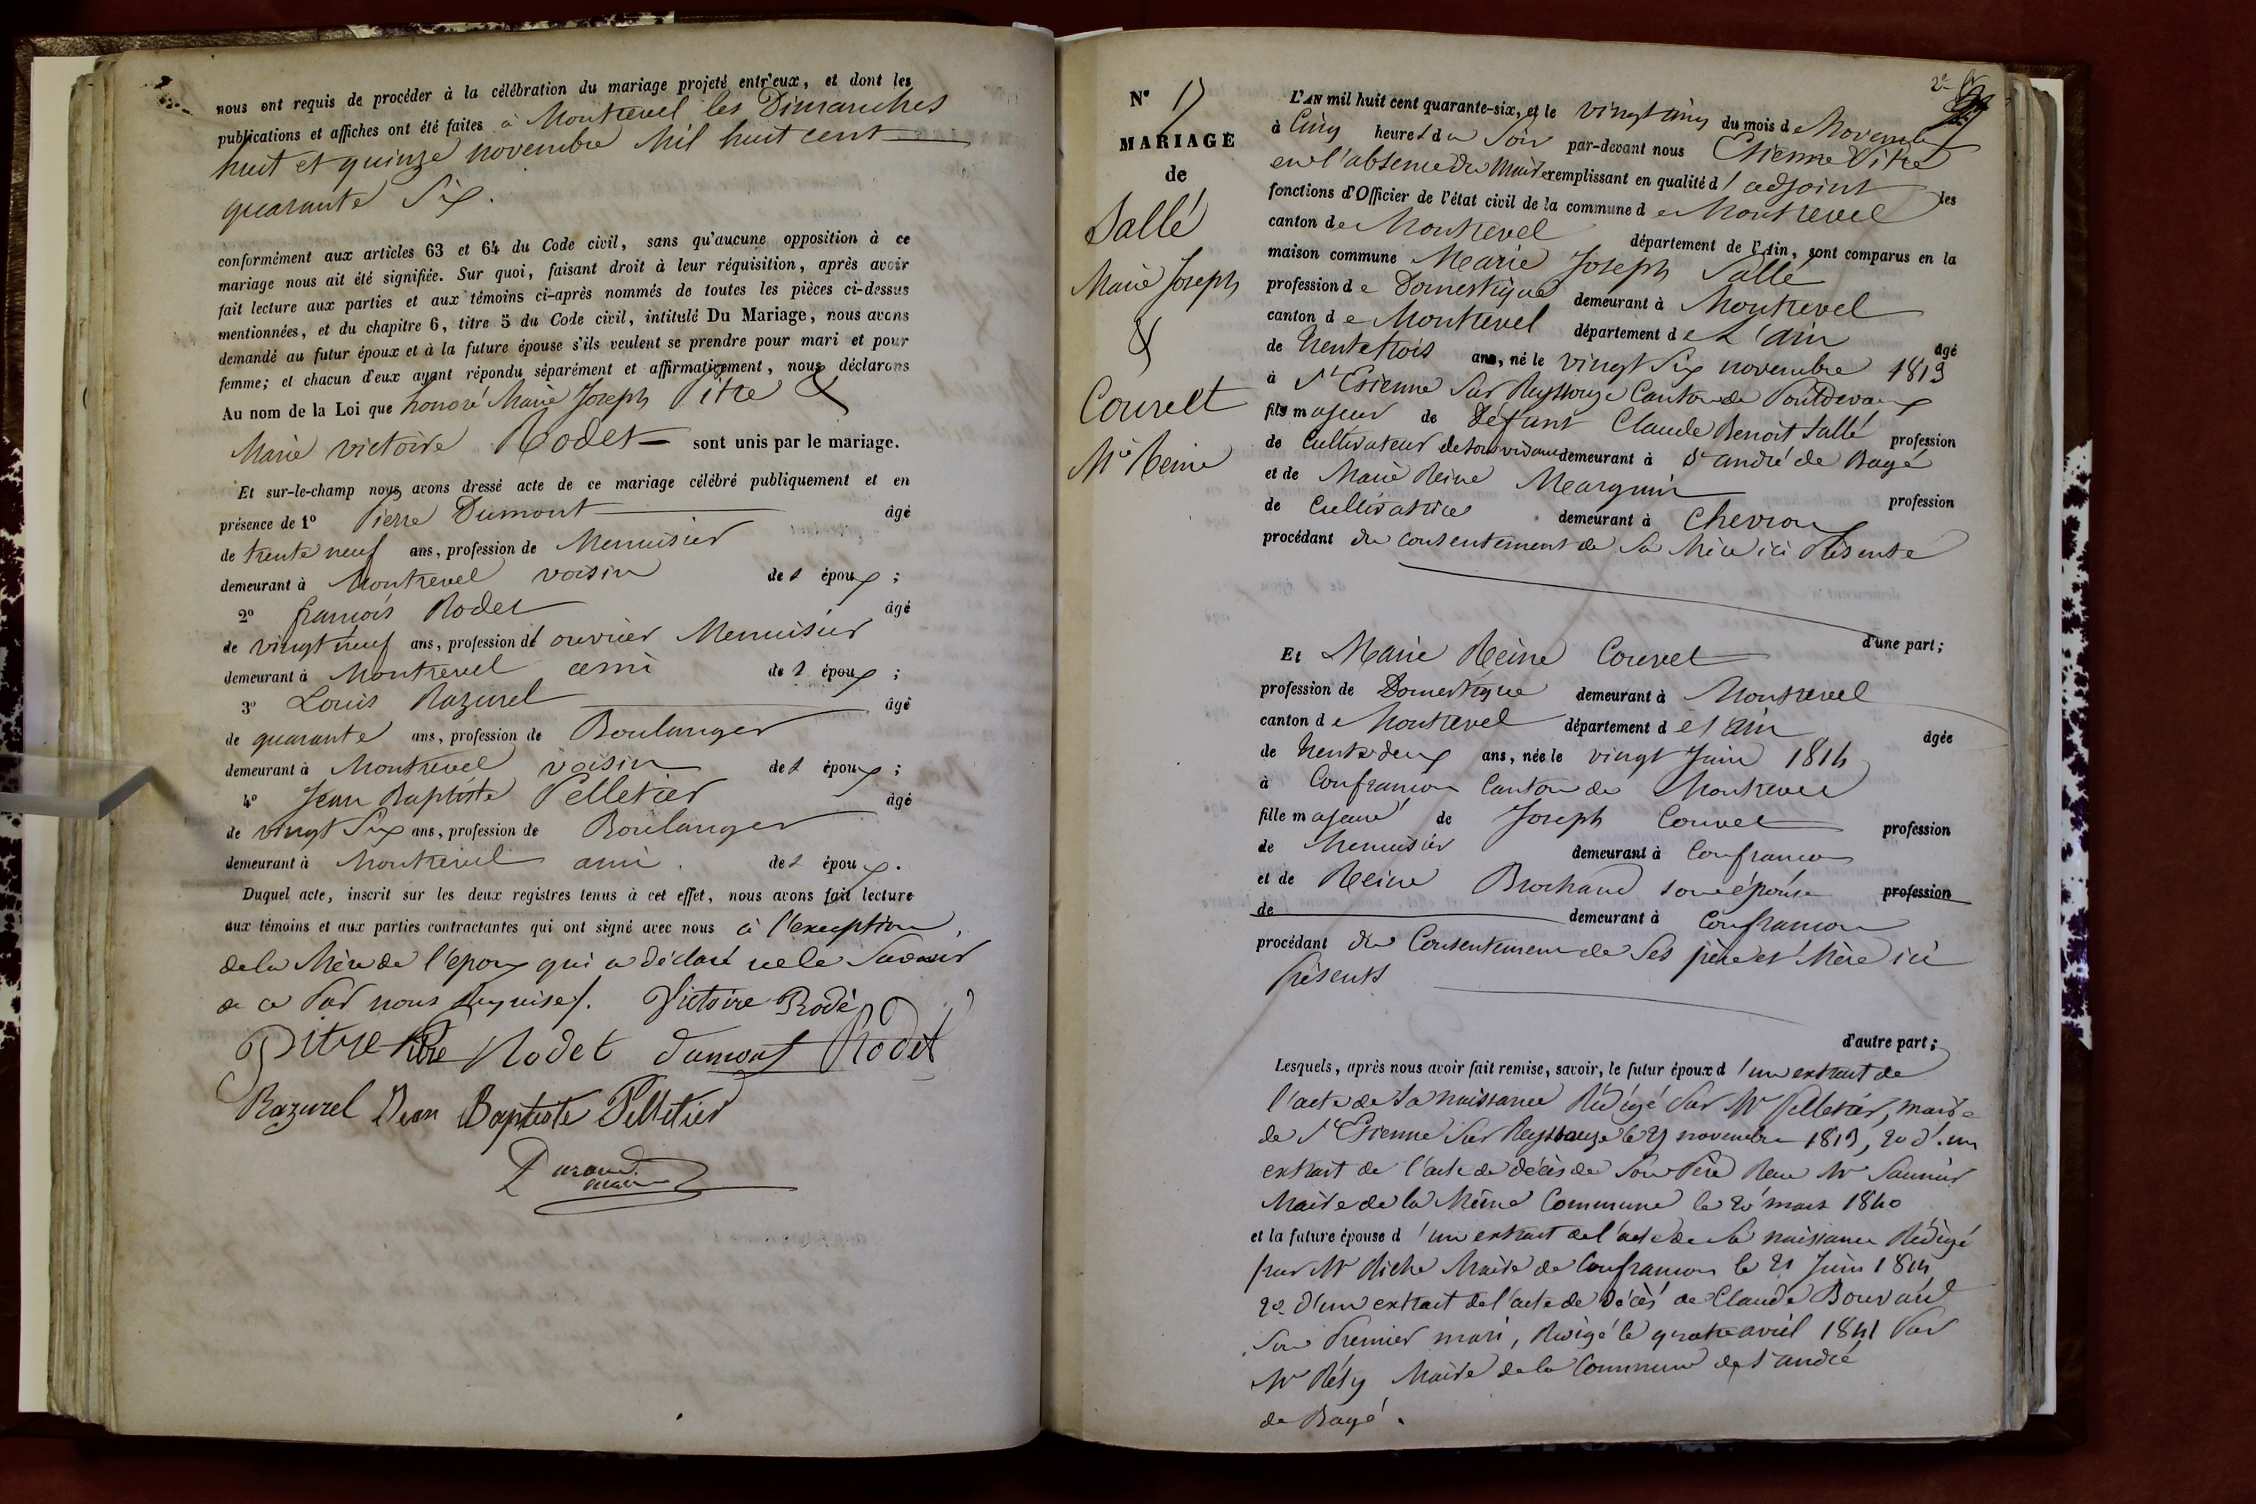 nous ont requis de procéder à la célébration du mariage projeté entr'eux, et dont les
publications et affiches ont été faites à Montrevel les Dimanches
huit et quinze novembre Mil huit cent
quarante Six.
conformément aux articles 63 et 64 du Code civil, sans qu'aucune opposition à ce
mariage nous ait été signifiée. Sur quoi, faisant droit à leur réquisition, après avoir
fait lecture aux parties et aux témoins ci-après nommés de toutes les pièces ci-dessus
mentionnées, et du chapitre 6, titre 5 du Code civil, intitulé Du Mariage, nous avons
demandé au futur époux et à la future épouse s'ils veulent se prendre pour mari et pour
femme; et chacun d'eux ayant répondu séparément et affirmativement, nous déclarons
Au nom de la Loi que honoré Marie Joseph Pitre &
Marie victoire Rodet sont unis par le mariage.
Et sur-le-champ nous avons dressé acte de ce mariage célébré publiquement et en
présence de 1º Pierre Dumont âgé
de trente neuf ans, profession de Menuisier
demeurant à Montrevel voisin de l époux ;
2º francois Rodet âgé
de vingt neuf ans, profession d' ouvrier Menuisier
demeurant à Montrevel ami de l époux ;
3º Louis Razurel âgé
de quarante ans, profession de Boulanger
demeurant à Montrevel voisin de l époux ;
4º Jean Baptiste Pelletier âgé
de vingt Six ans, profession de Boulanger
demeurant à Montrevel ami. de l époux.
Duquel acte, inscrit sur les deux registres tenus à cet effet, nous avons fait lecture
aux témoins et aux parties contractantes qui ont signé avec nous à l'exception
de la Mère de l'epoux qui a déclaré ne le Savoir
de ce Par nous Requise/. Victoire Rodé
Pitre Pitre Rodet dumont Rodet
Razurel Jean Baptiste Pelletier
Durand
maire
2e
Nº 17
MARIAGE
de
Sallé
Marie Joseph
&
Couvelt
Mie Reine
L'AN mil huit cent quarante-six, et le vingt cinq du mois de Novembre
à Cinq heures du Soir par-devant nous Etienne Vitre
en l'absence du Maire remplissant en qualité d' adjoint les
fonctions d'Officier de l'état civil de la commune de Montrevel
canton de Montrevel département de l'Ain, sont comparus en la
maison commune Marie Joseph Sallé
profession de Domestique demeurant à Montrevel
canton de Montrevel département de l'ain âgé
de trente trois ans, né le vingt Six novembre 1813
à St Etienne Sur Reyssouze Canton de Pontdevaux
fils majeur de Défunt Claude Benoit Sallé profession
de Cultivateur de son vivant demeurant à St andré de Bagé
et de Marie Reine Marguin profession
de Cultivatrice demeurant à Chevroux
procédant du consentement de Sa Mère ici Présente
d'une part;
Et Marie Reine Couvet
profession de Domestique demeurant à Montrevel
canton de Montrevel département de l ain âgée
de trente deux ans, née le vingt Juin 1814
à Confrançon Canton de Montrevel
fille majeure de Joseph Couvet profession
de Menuisier demeurant à Confrancon
et de Reine Brochand son épouse profession
de demeurant à Confrancon
procédant du Consentement de Ses père et Mère ici
Présents
d'autre part;
Lesquels, après nous avoir fait remise, savoir, le futur époux d'un extrait de
l'acte de Sa naissance Rédigé Par Mr Pelletier, maire
de St Etienne Sur Reyssouze le 27 novembre 1813, 2º d'un
extrait de l'acte de décès de Son Père Par Mr Saunier
Maire de la Même Commune le 20 mars 1840
et la future épouse d'un extrait de l'acte de Sa naissance Rédigé
par Mr Riche Maire de Confrancon le 21 Juin 1814
2º. d'un extrait de l'acte de Décès de Claude Bouvard
Son Premier mari, Rédigé le quatre avril 1841 Par
Mr Réty Maire de la Commune de St andré
de Bagé.